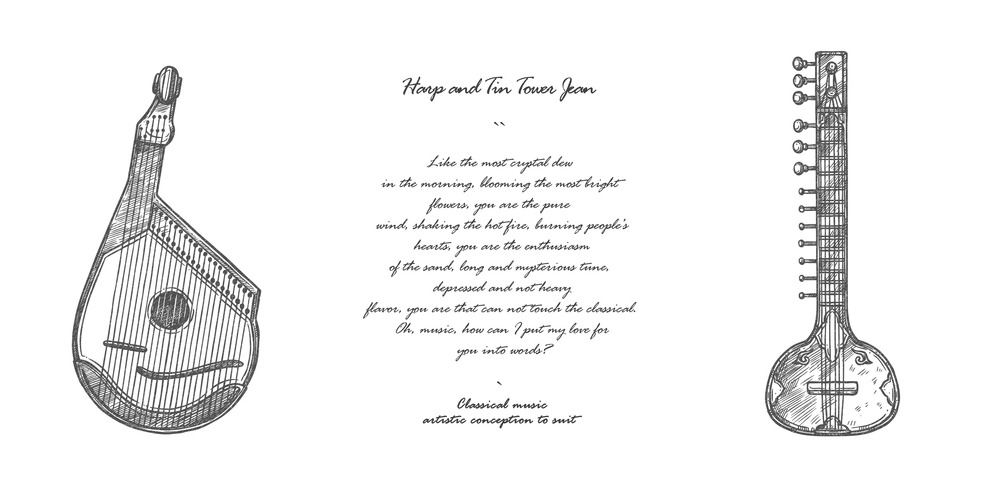 Harp and Tin Tower Jean
``
Like the most crystal dew
in the morning, blooming the most bright
flowers, you are the pure
wind, shaking the hot fire, burning people's
hearts, you are the enthusiasm
of the sand, long and mysterious tune,
depressed and not heavy
flavor, you are that can not touch the classical.
Oh, music, how can I put my love for
you into words?
`
Classical music
artistic conception to suit